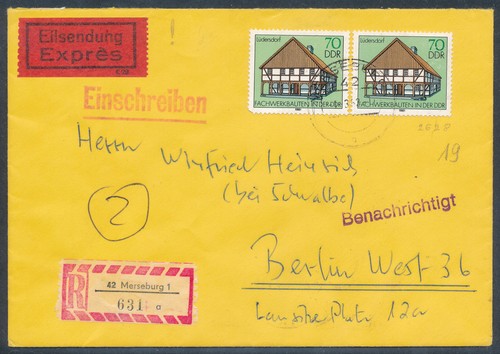 Eilsendung
Exprès
Einschreiben
Lüdersdorf 70
DDR
FACHWERKBAUTEN IN DER DDR
Lüdersdorf 70
DDR
FACHWERKBAUTEN IN DER DDR
Herrn Winfried Heinrich
(bei Schwalbe)
2
19
Benachrichtigt
Berlin West 36
Platz 12a
R
42 Merseburg 1
631 a